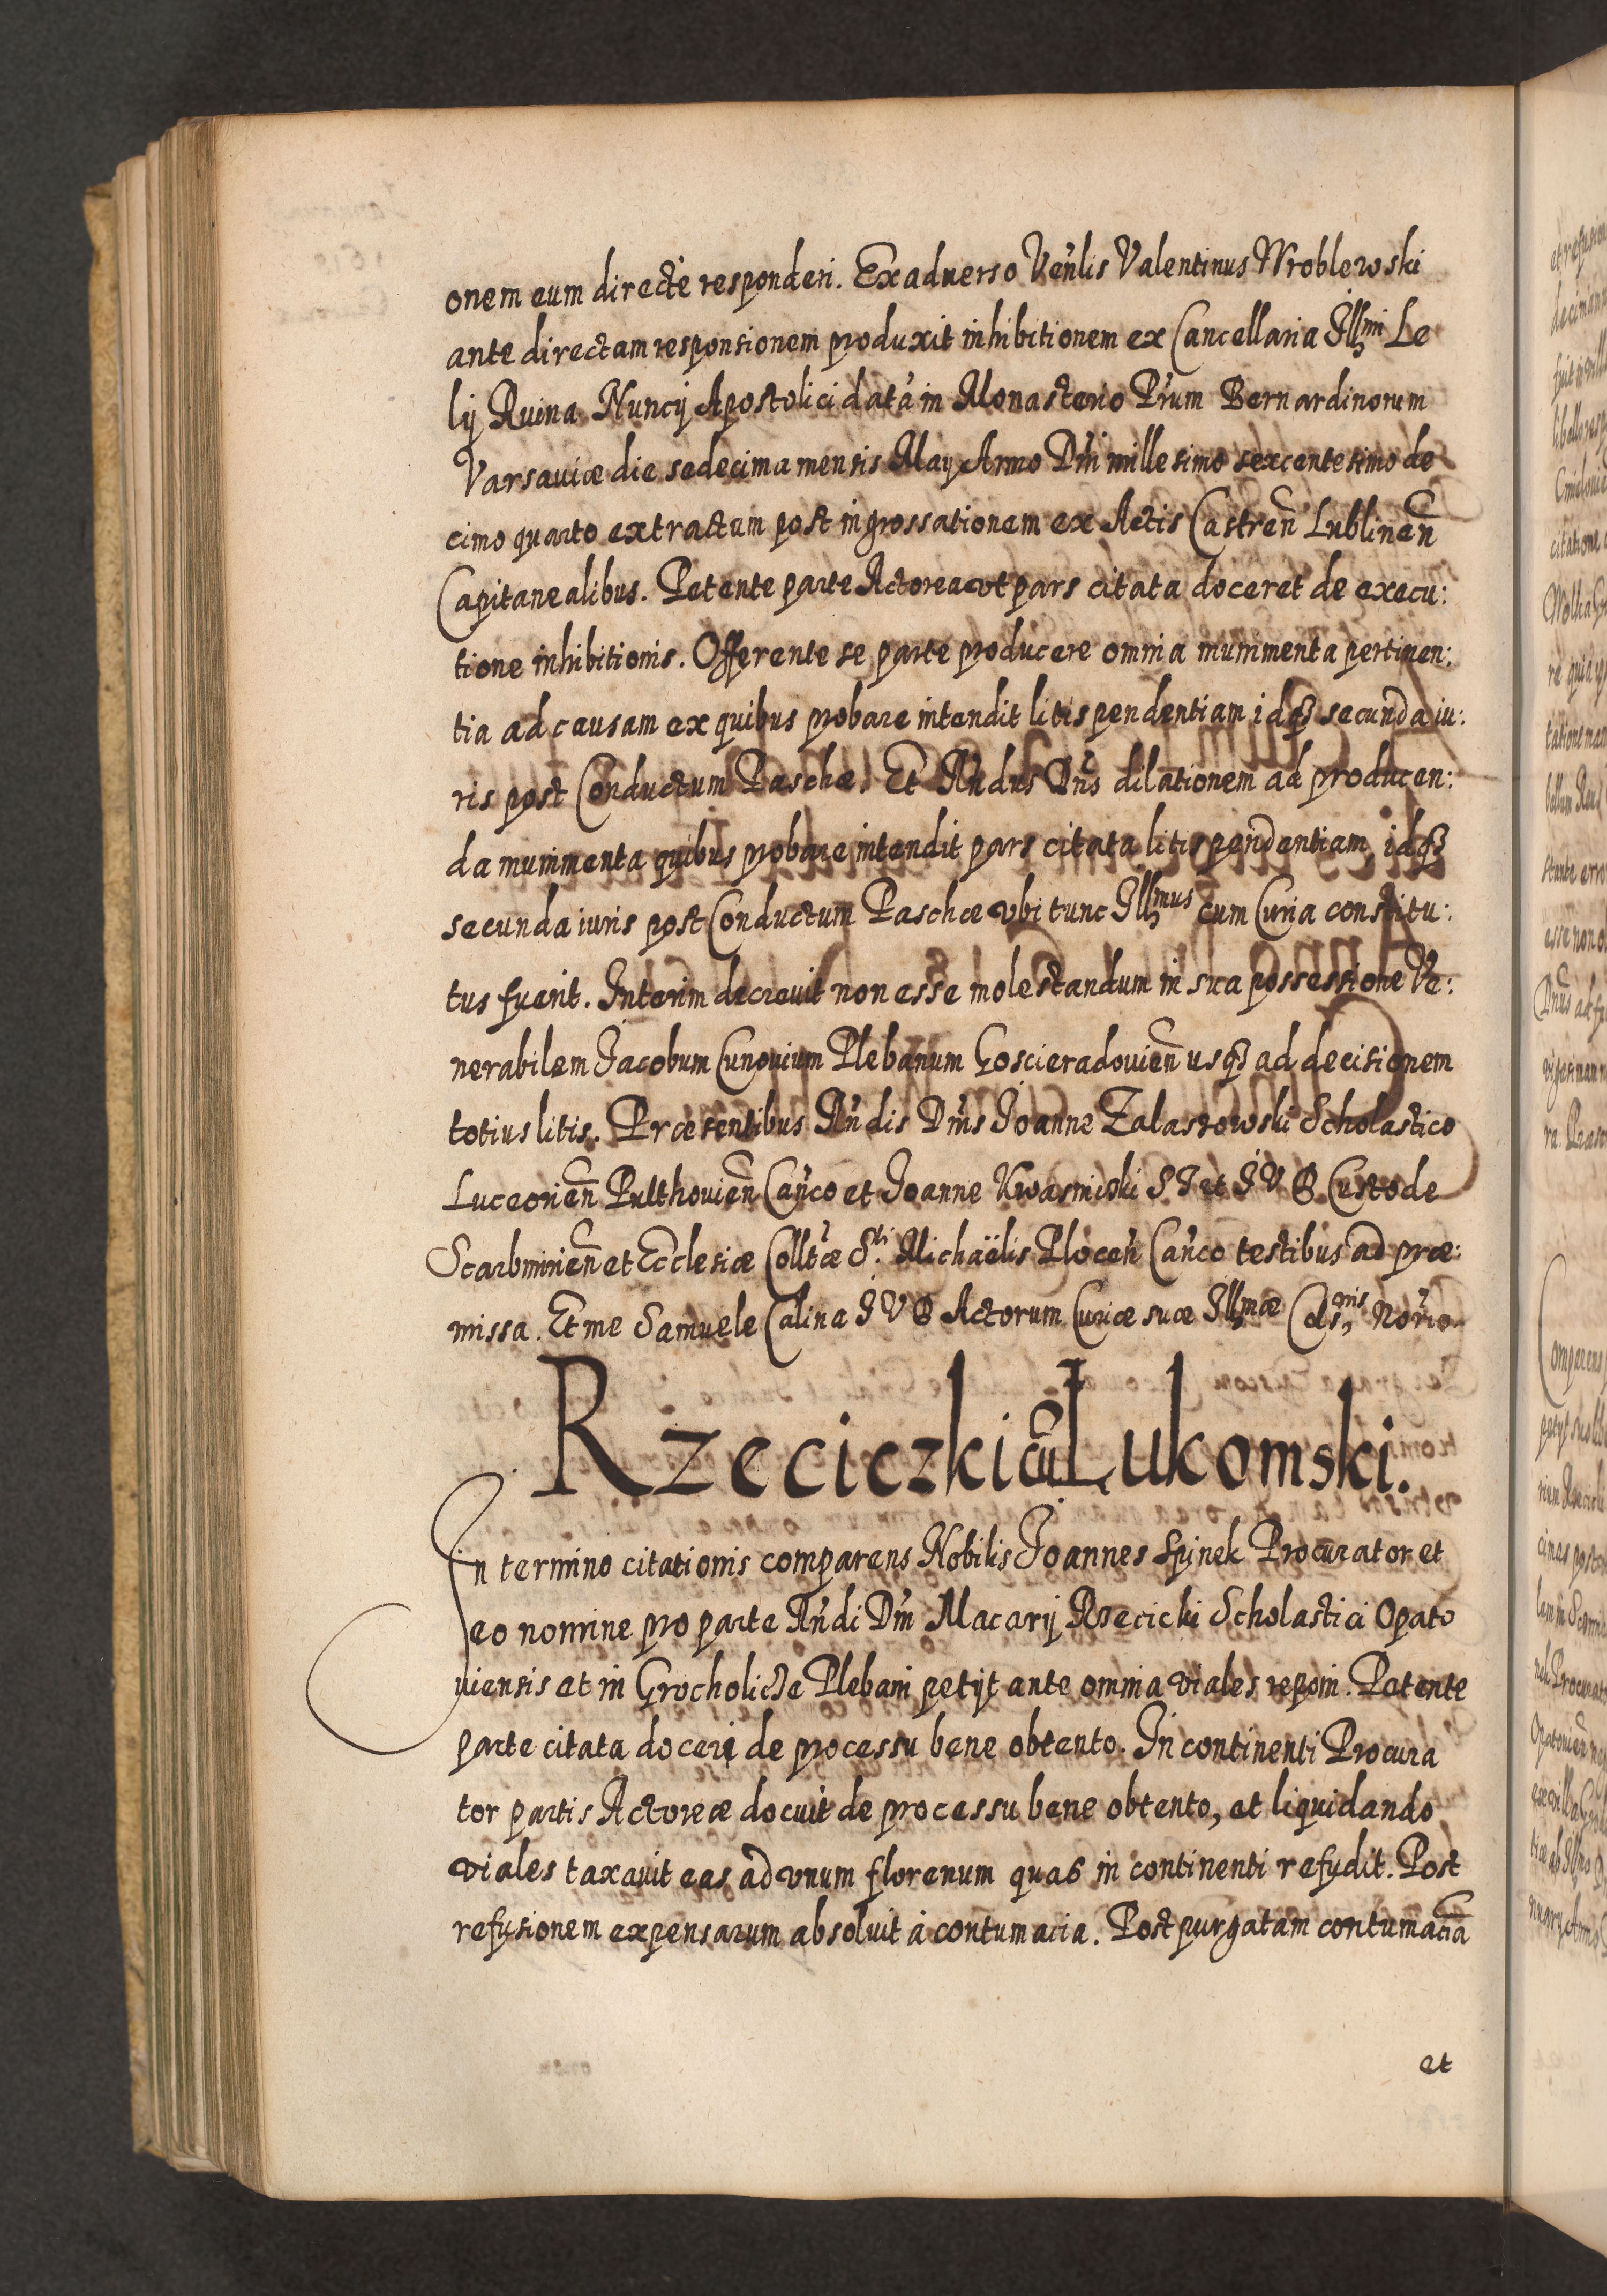 onem eum directè responderi. Ex aduerso Veńlis Valentinus Wroblewski
ante directam responsionem produxit inhibitionem ex Cancellaria Illmi Le
lij Ruina Nuncij Apostolici datā in Monasterio Pr̃um Bernardinorum
Varsauiæ die sedecima mensis May Anno Dñi millesimo sexcentesimo de
cimo quarto extractum post ingrossationem ex Actis Castreñ Lublineñ
Capitanealibus. Petente parte Actorea vt pars citata doceret de execu:
tione inhibitionis. Offerente se parte producere omnia munimenta pertinen:
tia ad causam ex quibus probare intendit litispendentiam idqꝫ secunda iu:
ris post Conductum Paschæ. Et Rńdus Dńs dilationem ad producen:
da munimenta quibus probare intendit pars citata litispendentiam, idqꝫ
secunda iuris post Conductum Paschæ vbi tunc Illmus cum Curia constitu:
tus fuerit. Interim decreuit non esse molestandum in sua possessione Ve:
nerabilem Jacobum Cunouium Plebanum Goscieradouieñ usqꝫ ad decisionem
totius litis. Præsentibus Rńdis Dńis Joanne Zalaszowski Scholastico
Luceorieñ Pulthouieñ Cańco et Joanne Kwasnicski S T et J V D Custode
Scarbmirieñ et Ecclesiæ Colltæ Sti Michaëlis Ploceń Cańco testibus ad præ:
missa. Et me Samuele Calina J V D Actorum Curiæ suæ Illmæ Celsnis Nõrio
Rzecieczki cũ Łukomski.
In termino citationis comparens Nobilis Joannes Spinek Procurator et
eo nomine pro parte Rńdi Dńi Macarij Rzecicki Scholastici Opato
uiensis et in Grocholicze Plebani petijt ante omnia viales reponi. Petente
parte citata doceri de processu bene obtento. In continenti Procura
tor partis Actoreæ docuit de processu bene obtento, et liquidando
viales taxauit eas ad vnum florenum quas in continenti refudit. Post
refusionem expensarum absoluit à contumacia. Post purgatam contumaciā
et